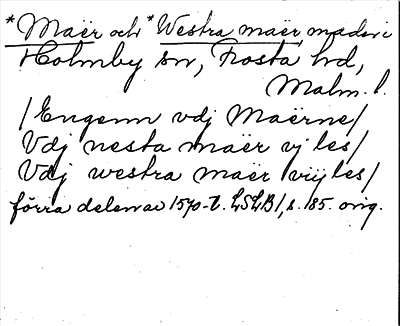 *Maër och *Westra maër, mader i
Holmby sn, Frosta hd,
Malm. l.
/Engenn vdj Maërne/
Vdj nesta maër vj les/
Vdj westra maër vij les/
förra delen av 1570-t. LSLB1, s. 185. orig.